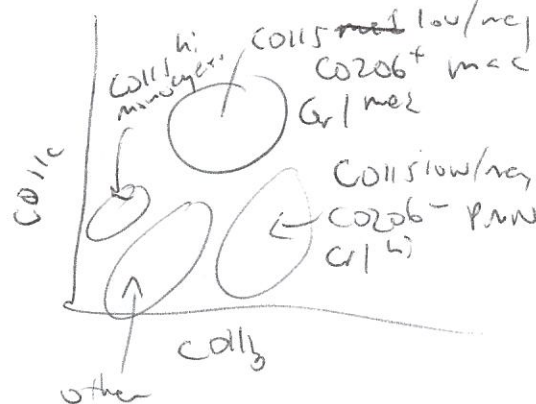 CD115 hi
monocytes
CD115 low/neg
CD206+ mac
Gr1 med
CD115 low/neg
CD206- PMN
Gr1 hi
CD11c
CD11b
other